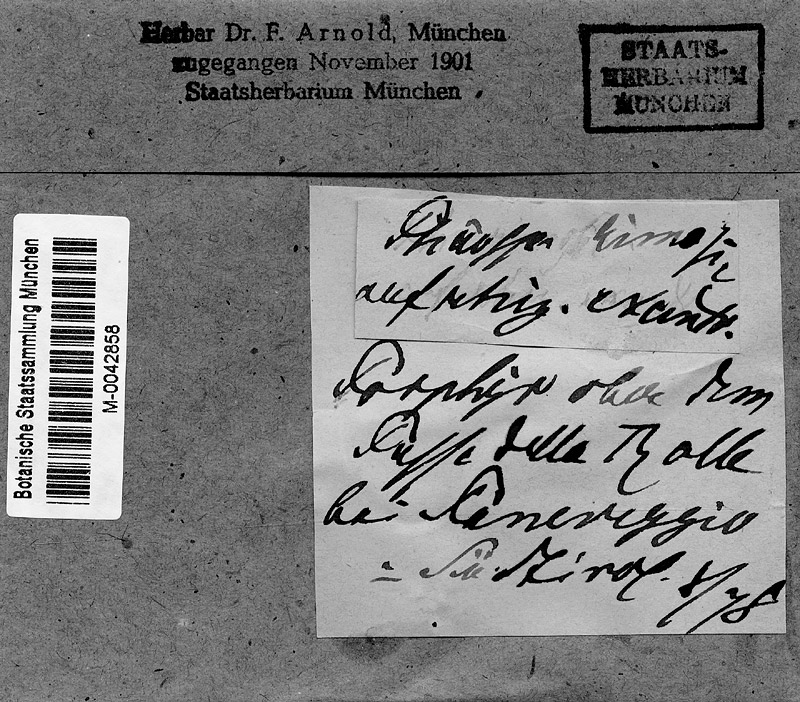 Herbar Dr. F. Arnold, München
zugegangen November 1901
Staatsherbarium München
STAATS-
HERBARIUM
MÜNCHEN
Botanische Staatssammlung München
M-0042858
auf
Porphyr ober dem
Passe della Rolle
bei Paneveggio
in Südtirol. 8/78